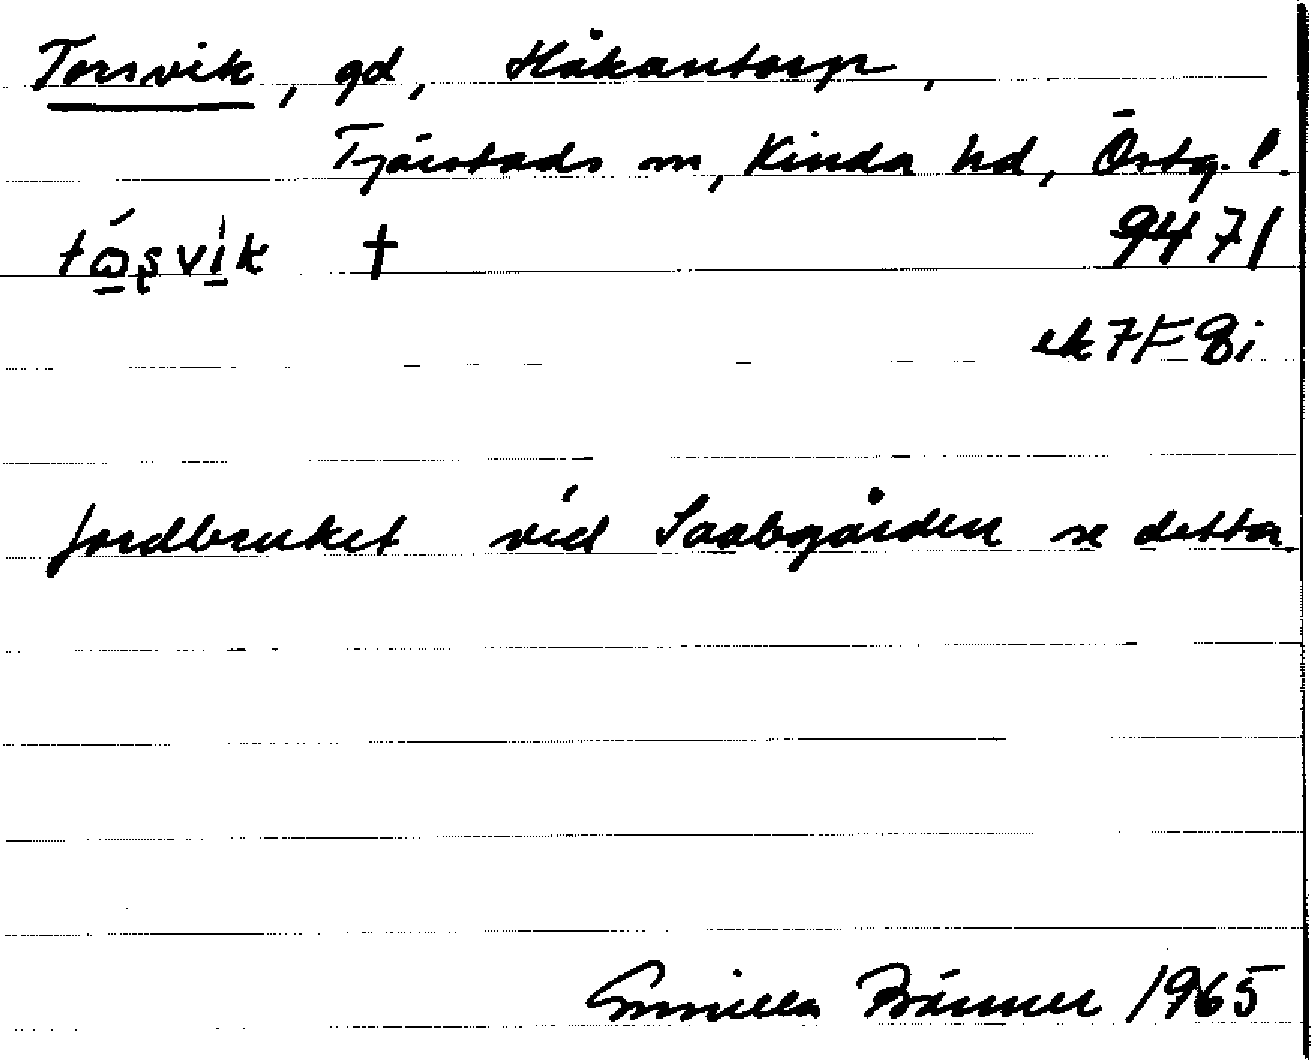 Torsvik, gd, Håkantorp,
Tjärstads sn, Kinda hd, Östg. l.
tó̲ʂvi̲k †
9471
ek 7F8i
Jordbruket vid Saabgården se detta.
Gunilla Bänner 1965